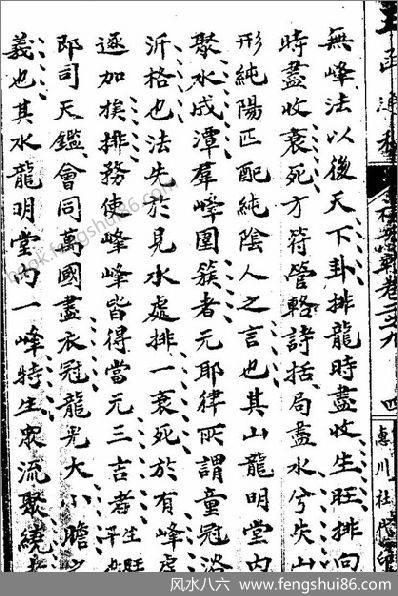 無峰法以後天下卦排龍時盡收生旺排向
時盡收衰死方符管輅詩括局盡水兮失山
形純陽匹配純陰人之言也其山龍明堂內
聚水成潭羣峰圍簇者元耶律所謂童冠浴
沂格也法先於見水處排一衰死於有峰處
逐加挨排務使峰峰皆得當元三吉者生旺
即司天鑑會同萬國盡衣冠龍光大小瞻
義也其水龍明堂內一峰特生眾流聚繞
四
book.fengshui86.com
风水八六 - www.fengshui86.com